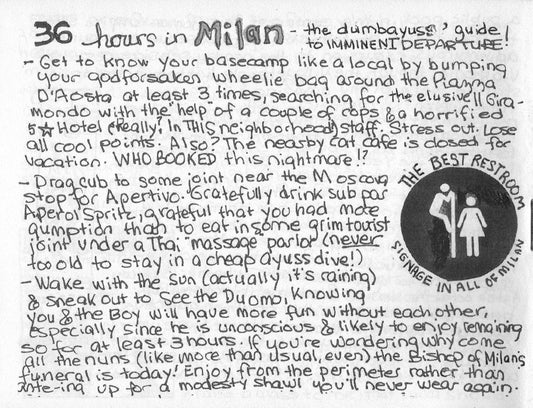 36 hours in Milan - the dumbayuss' guide
to IMMINENT DEPARTURE!
- Get to know your basecamp like a local by bumping
your godforsaken wheelie bag around the Piazza
D'Aosta at least 3 times, searching for the elusive Il Gira-
mondo with the "help" of a couple of cops & a horrified
5☆ Hotel (Really? In THIS neighborhood) staff. Stress out. Lose
all cool points. Also? The nearby cat cafe is closed for
vacation. WHO BOOKED this nightmare!?
- Drag cub to some joint near the Moscova
stop for Apertivo. Gratefully drink sub par
Aperol Spritz, grateful that you had more
gumption than to eat in some grim tourist
joint under a Thai "massage parlor (never
too old to stay in a cheap ayuss dive!)
- Wake with the sun (actually it's raining)
& sneak out to See the Duomo, Knowing
you & the Boy will have more fun without each other,
especially since he is unconscious & likely to enjoy remaining
so for at least 3 hours. If you're wondering why come
all the nuns (like more than usual, even) the Bishop of Milan's
funeral is today! Enjoy from the perimeter rather than
ante-ing up for a modesty shawl you'll never wear again.
THE BEST RESTROOM
SIGNAGE IN ALL OF MILAN